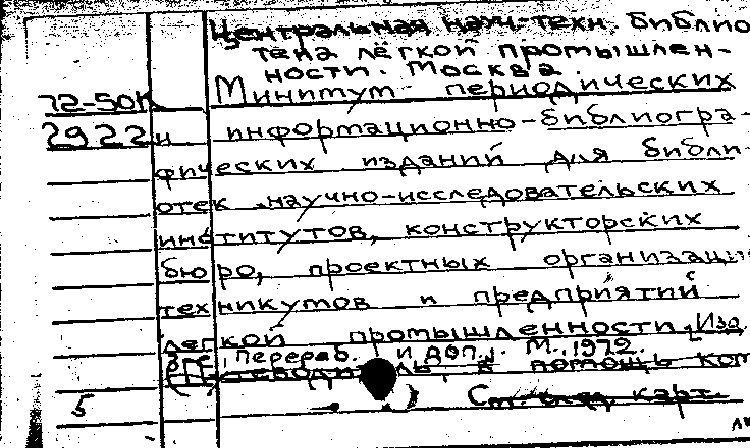 Центральная науч.-техн. библио
тека лёгкой промышлен-
ности. Москва.
72-50К Минимум периодических
2922 и информационно-библиогра-
фических изданий для библи-
отек научно-исследовательских
институтов, конструкторских
бюро, проектных организаций
техникумов и предприятий
легкой промышленности. [Изд
перераб. и доп.]. М., 1972.
в помощь ком
5 См. след. карт.